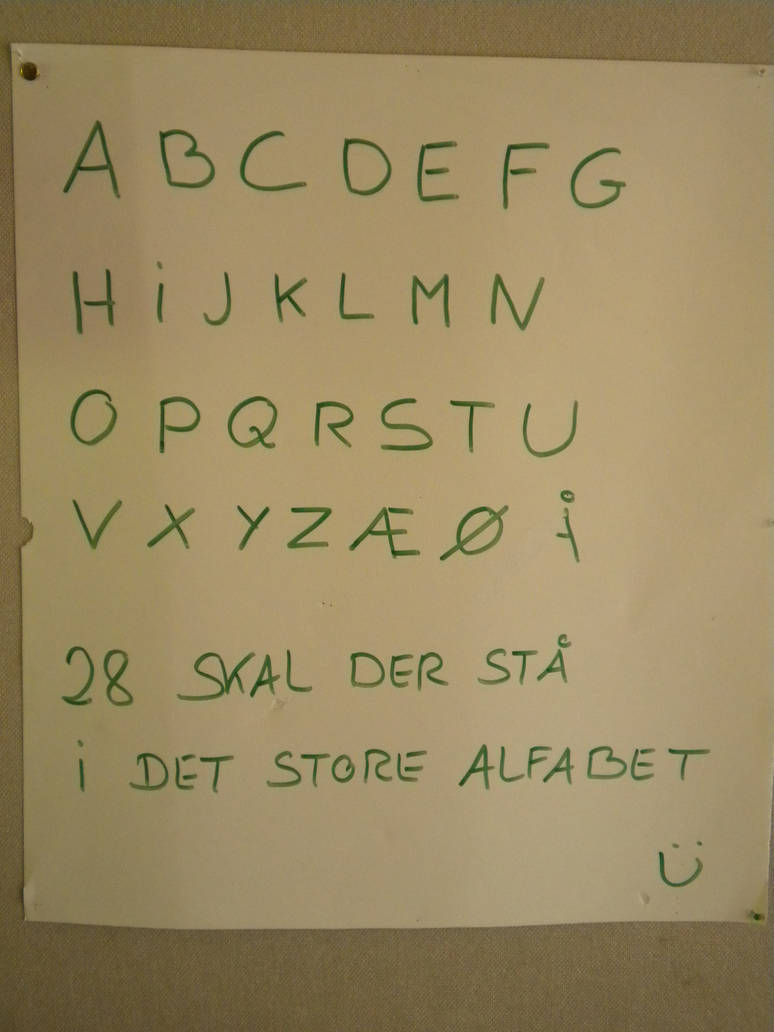 A B C D E F G
H i J K L M N
O P Q R S T U
V X Y Z Æ Ø Å
28 SKAL DER STÅ
i DET STORE ALFABET
Ü